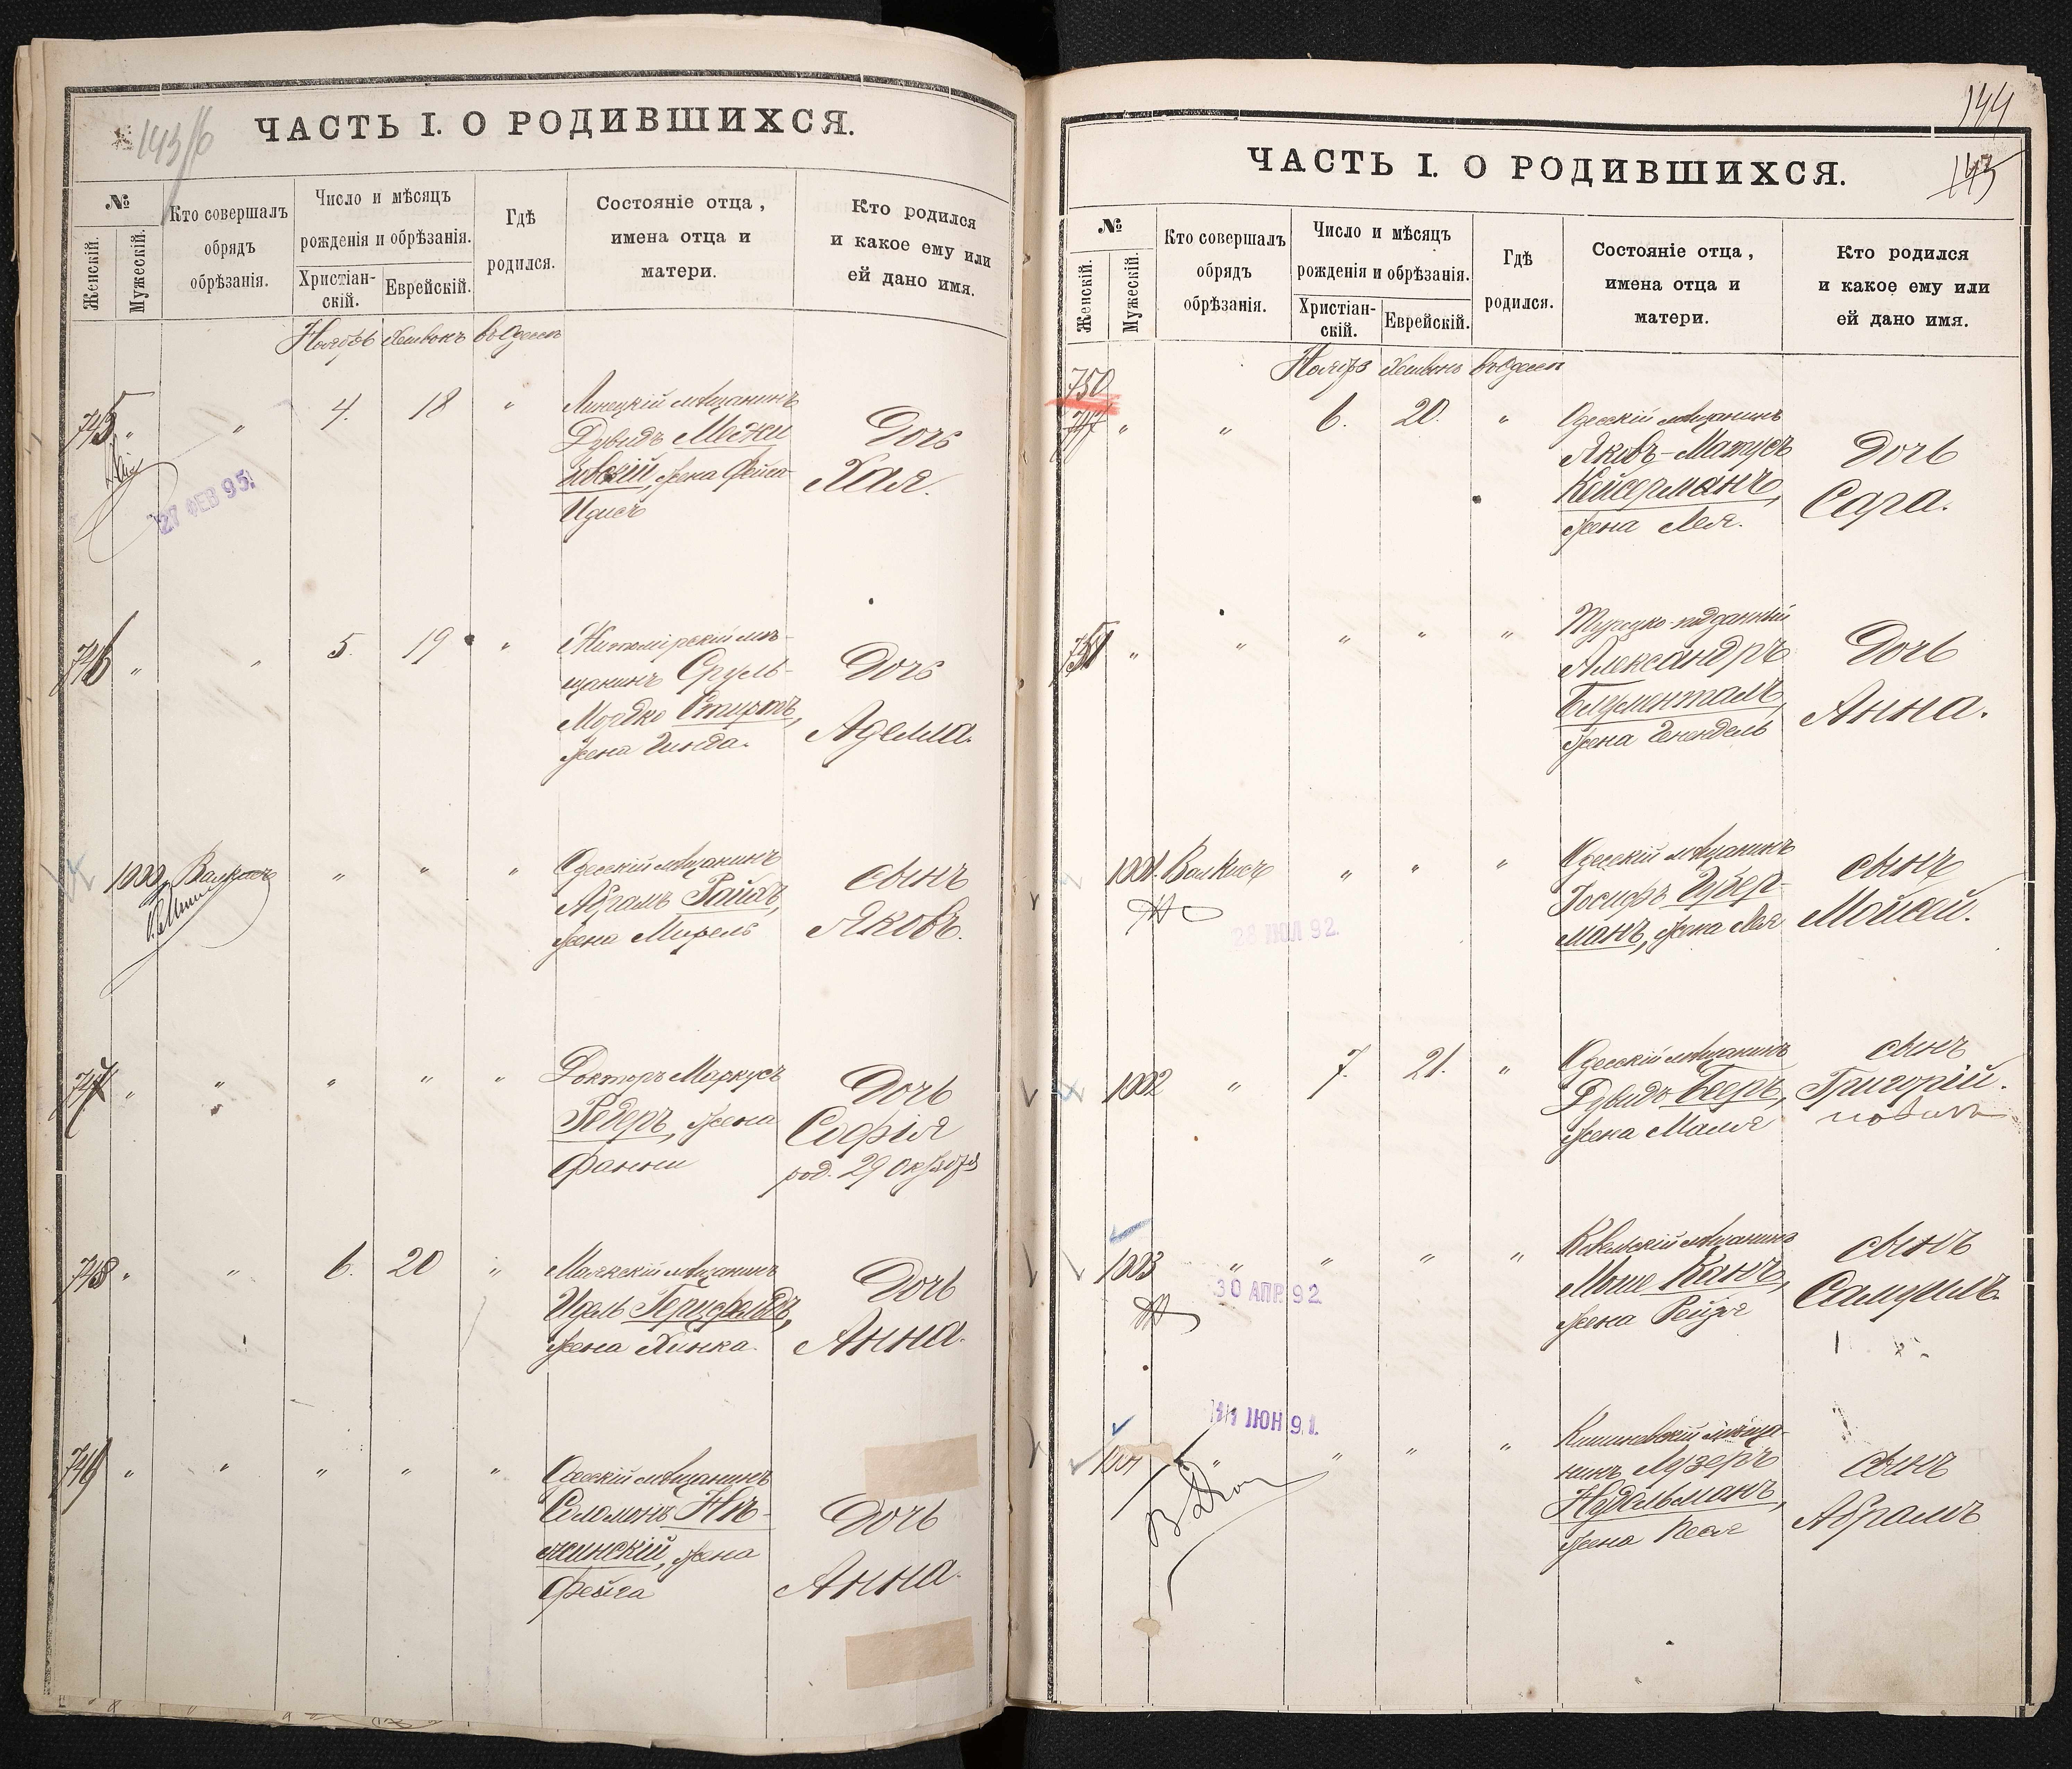 143/б
ЧАСТЬ I. О РОДИВШИХСЯ.
№
Женскій.
Мужескій.
Кто совершалъ
обрядъ
обрѣзанія.
Число и мѣсяцъ
рожденія и обрѣзанія.
Христіан-
скій.
Еврейскій.
Гдѣ
родился.
Состояніе отца,
имена отца и
матери.
Кто родился
и какое ему или
ей дано имя.
Ноябрь Хешвонъ въ Одессѣ
745 " " 4. 18 "
Липецкій мѣщанинъ
Дувидъ Межи
ивскій, жена Фейга
Идисъ
Дочь
Хая.
27 ФЕВ 95
746 " " 5. 19 "
Житомірскій мѣ-
щанинъ Сруль-
Мордко
жена Гинда.
Дочь
Аделла.
1000 " " "
Одесскій мѣщанинъ
Абрамъ
жена Мирель
сынъ
Яковъ.
747 " " " " "
Докторъ Маркусъ
Редеръ, жена
Фанни
Дочь
Софія
род. 29 Октября
748 " " 6. 20 "
Маякскій мѣщанинъ
Идель Герцфельдъ,
жена Хинка.
Дочь
Анна.
749 " " " " "
Одесскій мѣщанинъ
Соломонъ Нѣ-
жинскій, жена
Фейга
Дочь
Анна.
144
143
ЧАСТЬ I. О РОДИВШИХСЯ.
№
Женскій.
Мужескій.
Кто совершалъ
обрядъ
обрѣзанія.
Число и мѣсяцъ
рожденія и обрѣзанія.
Христіан-
скій.
Еврейскій.
Гдѣ
родился.
Состояніе отца,
имена отца и
матери.
Кто родился
и какое ему или
ей дано имя.
Ноябрь Хешвонъ въ Одессѣ
750
" " 6. 20. "
Одесскій мѣщанинъ
Яковъ-Матусъ
Кейсерманъ,
жена Лея.
Дочь
Сара.
751 " " " " "
Турецко-подданный
Александръ
Блументаль,
жена Генендель
Дочь
Анна.
1001. Валкисъ " " "
Одесскій мѣщанинъ
Іосифъ Губер-
манъ, жена Лея
сынъ
Мойсей.
28 ІЮЛ 92
1002 " 7. 21. "
Одесскій мѣщанинъ
Дувидъ Бееръ,
жена Малья
сынъ
Григорій.
1003 " " " "
Ковельскій мѣщанинъ
Моше Канъ,
жена Рейзя
сынъ
Самуилъ.
30 АПР 92
11 ІЮН 91.
1004 " " " "
Кишиневскій мѣща-
нинъ Лузеръ
Нудельманъ,
жена Песя
сынъ
Абрамъ